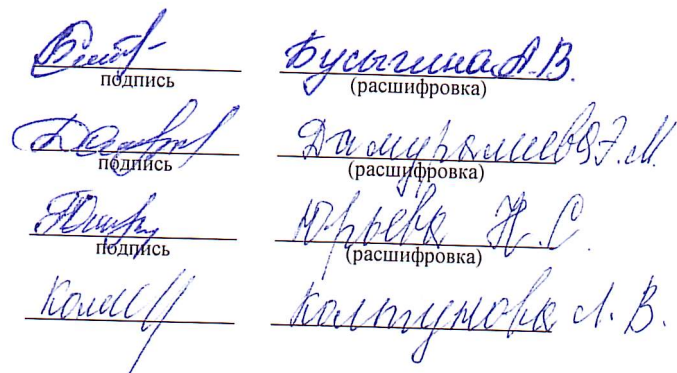 Бусыгина А.В.
подпись (расшифровка)
Дамуралиева Э.М.
подпись (расшифровка)
Юрьева Н.С.
подпись (расшифровка)
Колтунова Л.В.